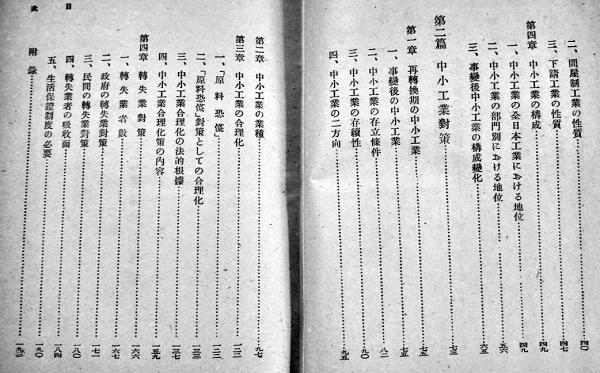 二、問屋制工業の性質……四〇
三、下請工業の性質……四七
第四章 中小工業の構成……四九
一、中小工業の全日本工業における地位……四九
二、中小工業の部門別における地位……五六
三、事變後中小工業の構成變化……六五
第二篇 中小工業對策……七三
第一章 再轉換期の中小工業……七五
一、事變後の中小工業……七五
二、中小工業の存立條件……八二
三、中小工業の存續性……九〇
四、中小工業の二方向……九五
第二章 中小工業の業種……九七
第三章 中小工業の合理化……一三一
一、「原料恐慌」……一三一
二、「原料恐慌」對策としての合理化……一三三
三、中小工業合理化の法的根據……一三七
四、中小工業合理化策の内容……一五九
第四章 轉失業對策……一六七
一、轉失業者數……一六七
二、政府の轉失業對策……一七一
三、民間の轉失業對策……一八〇
四、轉失業者の吸收面……一八四
五、生活保證制度の必要……一九〇
附錄……一九三
目次